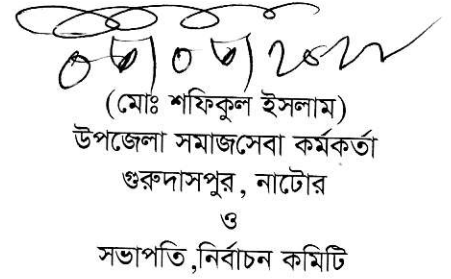 (মোঃ শফিকুল ইসলাম)
উপজেলা সমাজসেবা কর্মকর্তা
গুরুদাসপুর, নাটোর
ও
সভাপতি,নির্বাচন কমিটি